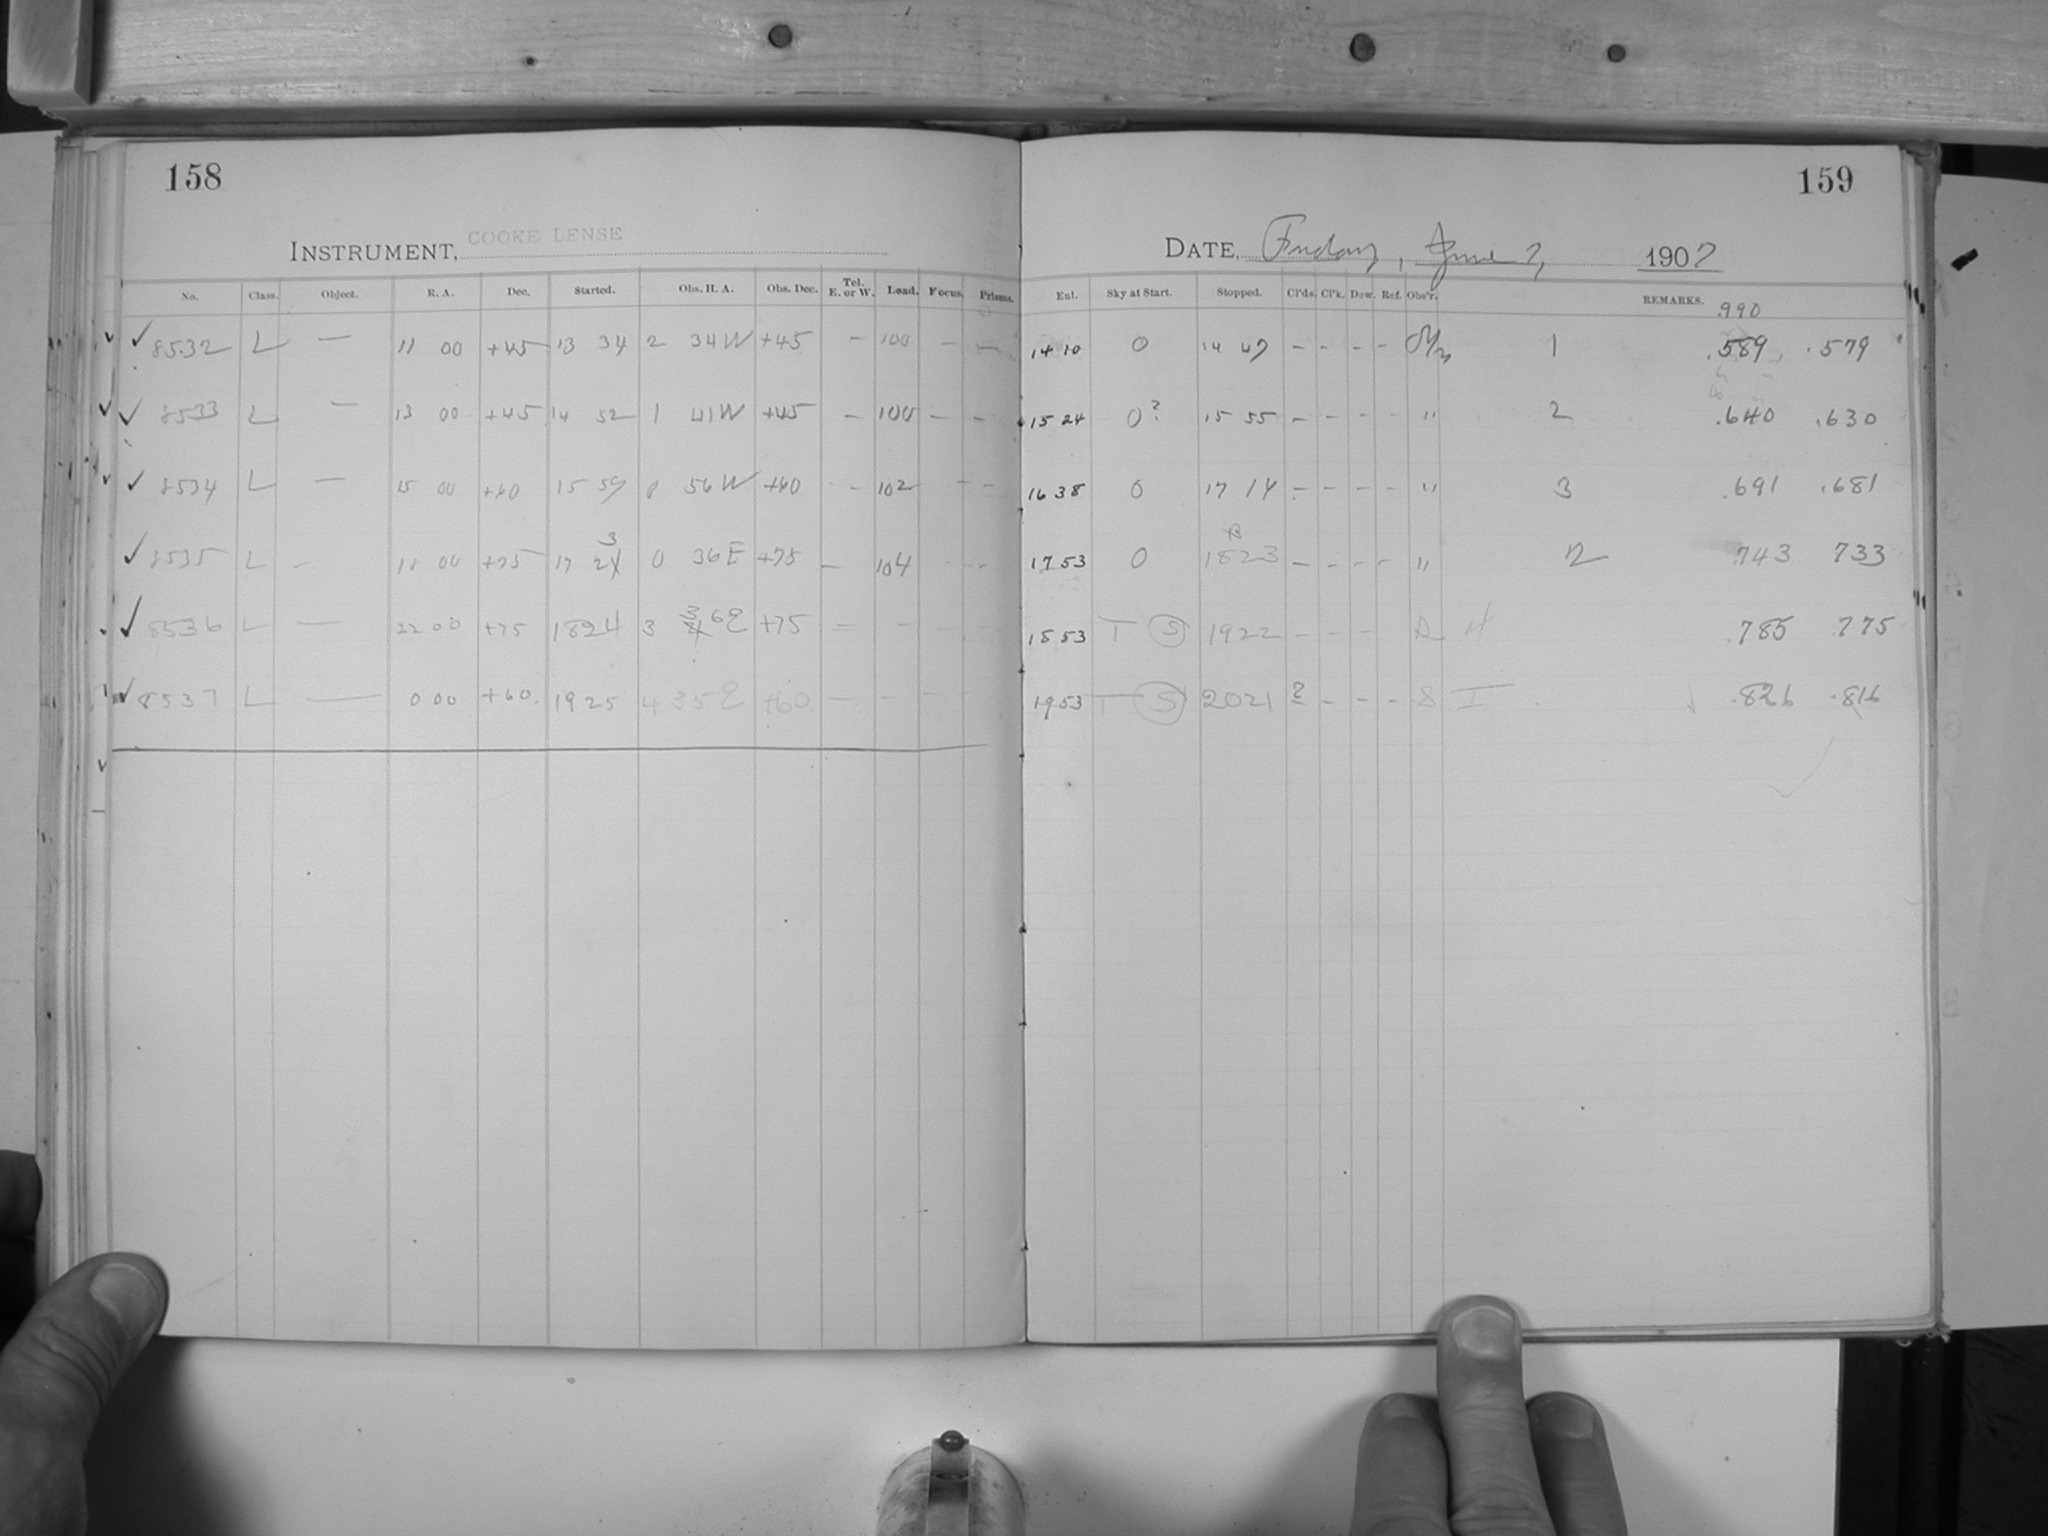 158
INSTRUMENT, COOKE LENSE
No. Class. Object. R. A. Dec. Started. Obs. H. A. Obs. Dec. Tel. E. or W. Load. Focus. Prisms.
8532 L — 11 00 +45 13 34 2 34 W +45 — 100 — —
8533 L — 13 00 +45 14 52 1 41 W +45 — 100 — —
8534 L — 15 00 +60 15 59 0 56 W +60 — 102 — —
8535 L — 18 00 +75 17 24 3 0 36 E +75 — 104 — —
8536 L — 22 00 +75 1824 3 36 E +75 — — — —
8537 L — 0 00 +60 1925 4 35 E +60 — — — —
159
DATE, Friday, June 7, 1907
Ent. Sky at Start. Stopped. Cl'ds. Cl'k. Dew. Ref. Obs'r. REMARKS.
.990
14 10 0 14 47 — — — — 1 .589 .579
15 24 0? 15 55 — — — — " 2 .640 .630
16 38 0 17 14 — — — — " 3 .691 .681
17 53 0 1823 — — — — " 2 743 733
18 53 T S 1922 — — — 4 .785 .775
19 53 T S 2021 2 — — — S I .826 .816